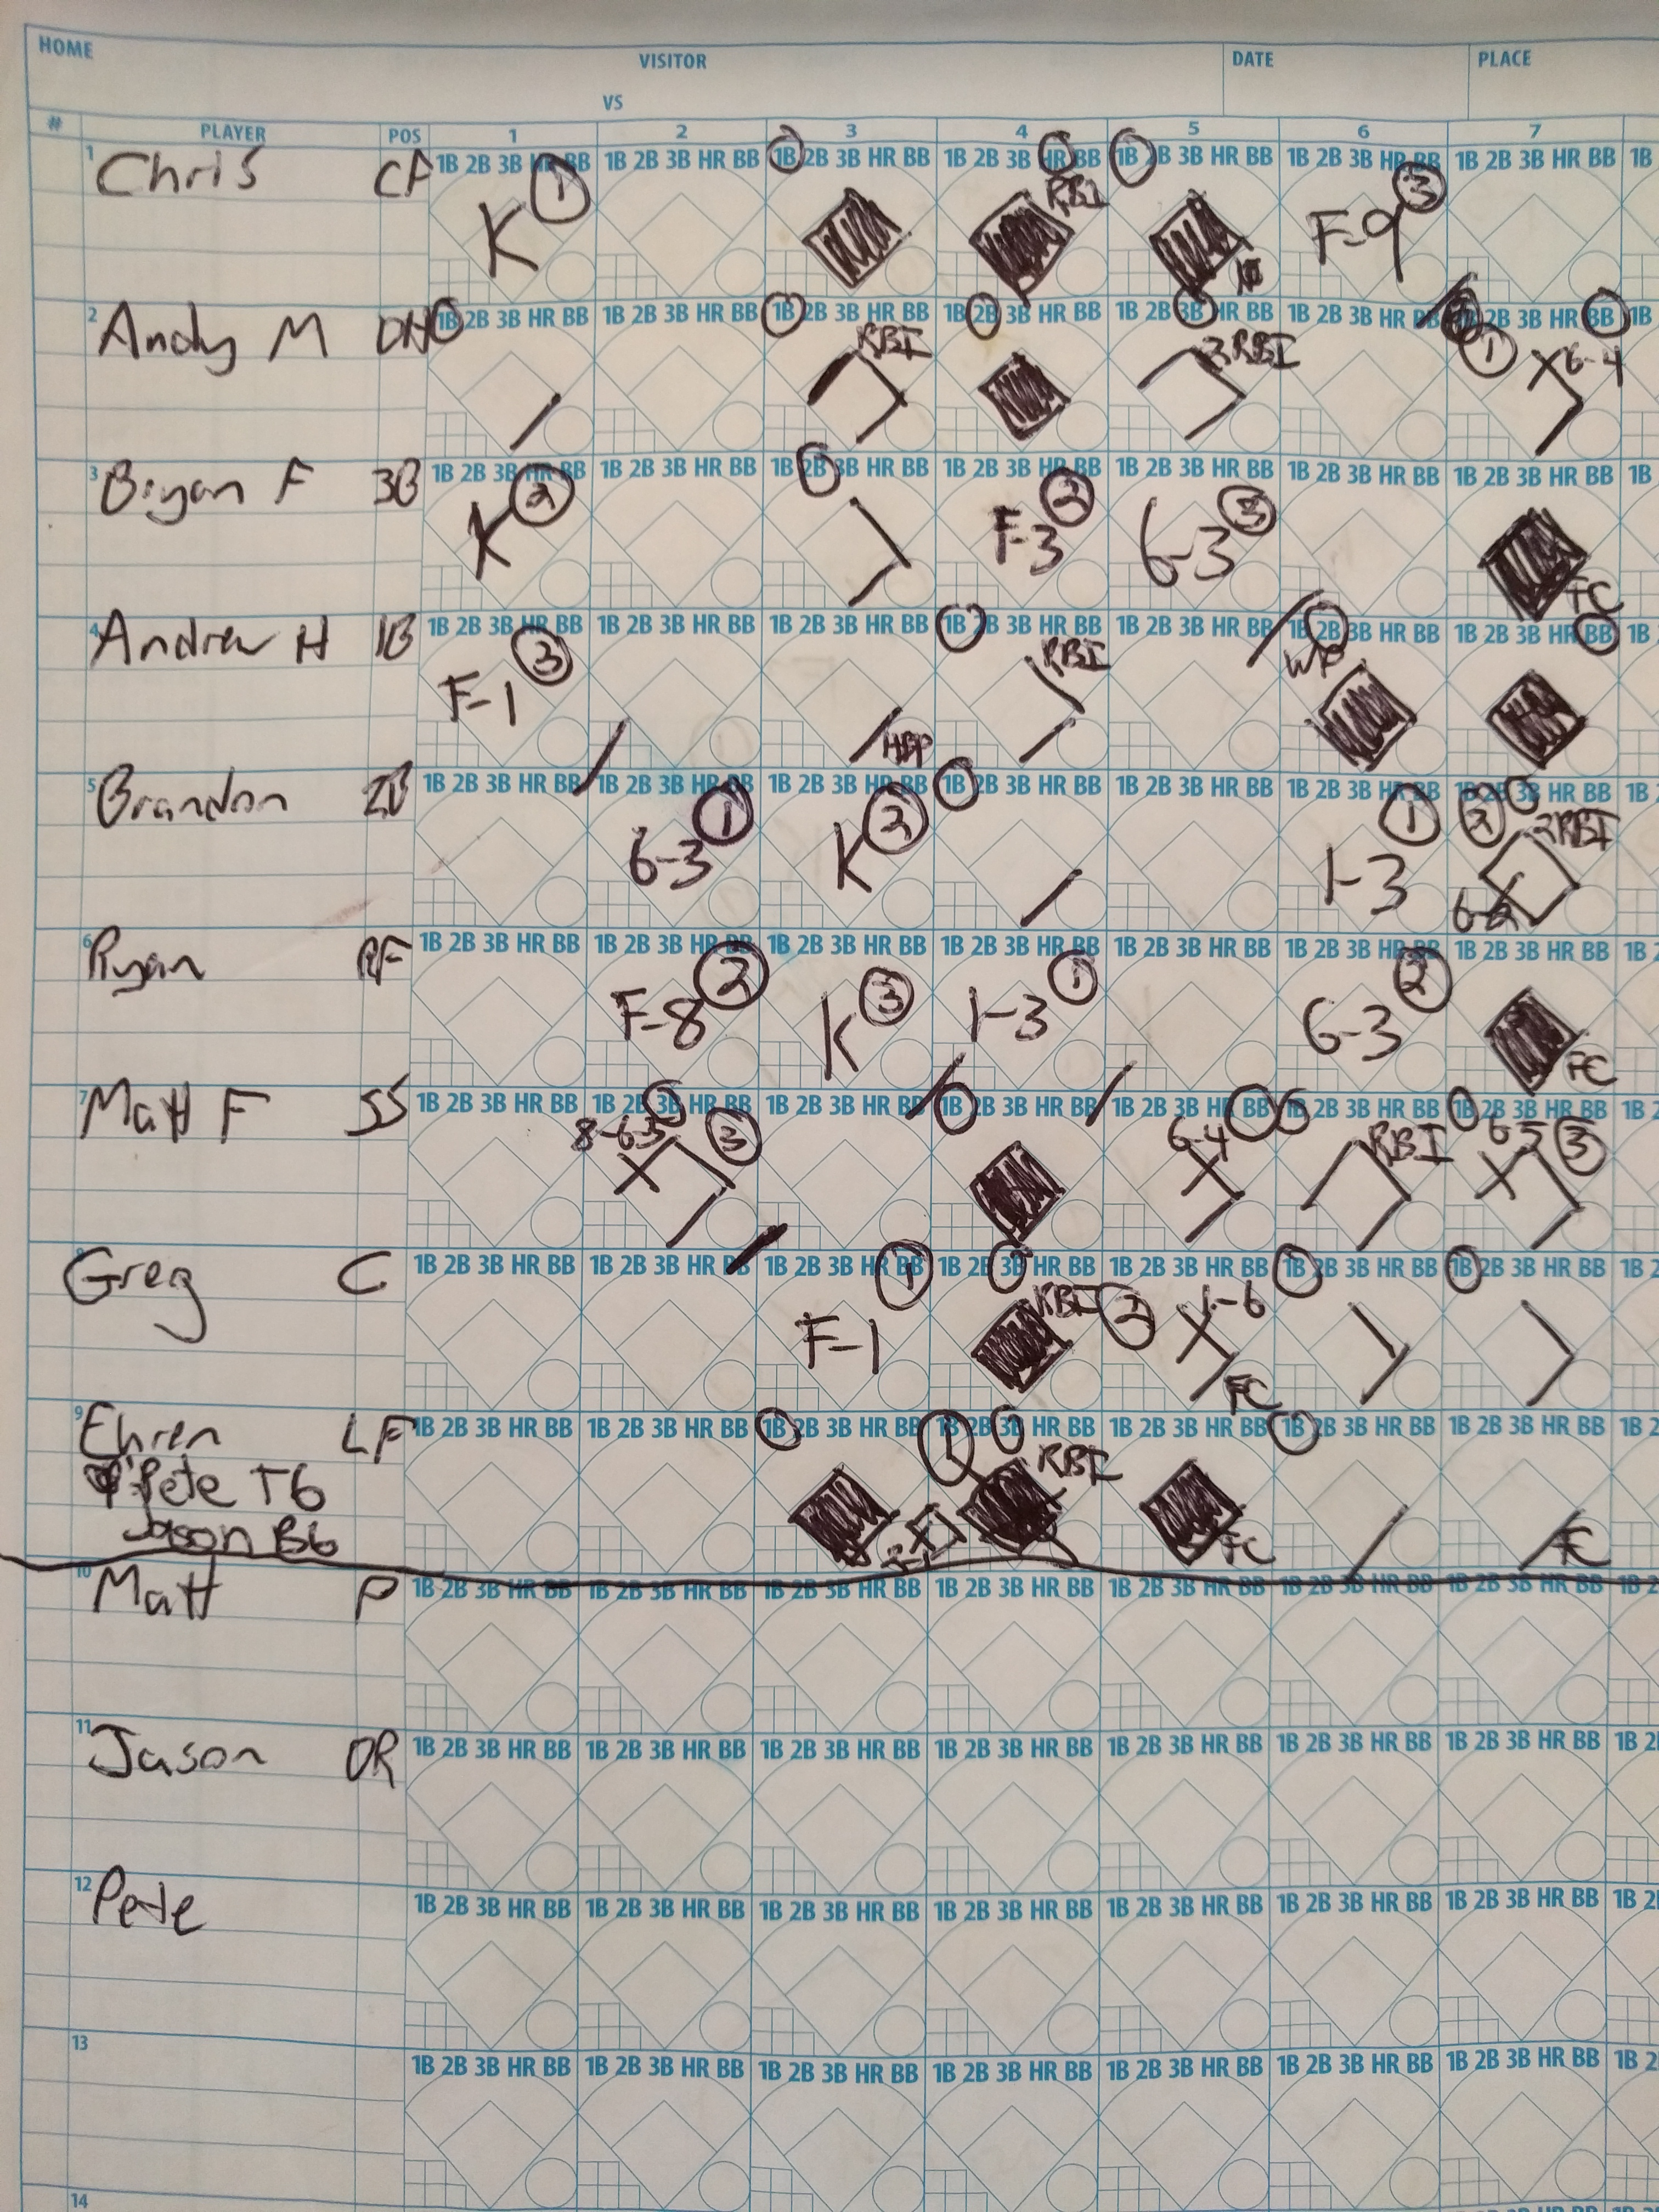 HOME VISITOR DATE PLACE
VS
# PLAYER POS 1 2 3 4 5 6 7
1B 2B 3B HR BB 1B 2B 3B HR BB 1B 2B 3B HR BB 1B 2B 3B HR BB 1B 2B 3B HR BB 1B 2B 3B HR BB 1B 2B 3B HR BB 1B
1 Chris CF K 1 RBI F-9 3
1B 2B 3B HR BB 1B 2B 3B HR BB 1B 2B 3B HR BB 1B 2B 3B HR BB 1B 2B 3B HR BB 1B 2B 3B HR BB 2B 3B HR BB 1B
2 Andy M DH RBI 2RBI 1 6-4
1B 2B 3B HR BB 1B 2B 3B HR BB 1B 2B 3B HR BB 1B 2B 3B HR BB 1B 2B 3B HR BB 1B 2B 3B HR BB 1B 2B 3B HR BB 1B
3 Bryan F 3B K 2 F-3 2 6-3 3 FC
1B 2B 3B HR BB 1B 2B 3B HR BB 1B 2B 3B HR BB 1B 2B 3B HR BB 1B 2B 3B HR BB 1B 2B 3B HR BB 1B 2B 3B HR BB 1B
4 Andrew H 1B F-1 3 HBP RBI WP
1B 2B 3B HR BB 1B 2B 3B HR BB 1B 2B 3B HR BB 1B 2B 3B HR BB 1B 2B 3B HR BB 1B 2B 3B HR BB 1B 2B 3B HR BB 1B
5 Brandon 2B 6-3 1 K 2 1-3 1 2 2RBI 6-2
1B 2B 3B HR BB 1B 2B 3B HR BB 1B 2B 3B HR BB 1B 2B 3B HR BB 1B 2B 3B HR BB 1B 2B 3B HR BB 1B 2B 3B HR BB 1B 2
6 Ryan RF F-8 2 K 3 1-3 1 6-3 2 FC
1B 2B 3B HR BB 1B 2B 3B HR BB 1B 2B 3B HR BB 1B 2B 3B HR BB 1B 2B 3B HR BB 1B 2B 3B HR BB 1B 2B 3B HR BB 1B 2
7 Matt F SS 8-6-5 3 6-4 RBI 6-5 3
1B 2B 3B HR BB 1B 2B 3B HR BB 1B 2B 3B HR BB 1B 2B 3B HR BB 1B 2B 3B HR BB 1B 2B 3B HR BB 1B 2B 3B HR BB 1B 2
8 Greg C F-1 1 RBI 2 1-6 FC
1B 2B 3B HR BB 1B 2B 3B HR BB 1B 2B 3B HR BB 1B 2B 3B HR BB 1B 2B 3B HR BB 1B 2B 3B HR BB 1B 2B 3B HR BB 1B 2
9 Ehren LF 1 RBI FC FC
Pete T6
Jason B6
1B 2B 3B HR BB 1B 2B 3B HR BB 1B 2B 3B HR BB 1B 2B 3B HR BB 1B 2B 3B HR BB 1B 2B 3B HR BB 1B 2B 3B HR BB 1B 2
10 Matt P
1B 2B 3B HR BB 1B 2B 3B HR BB 1B 2B 3B HR BB 1B 2B 3B HR BB 1B 2B 3B HR BB 1B 2B 3B HR BB 1B 2B 3B HR BB 1B 2
11 Jason DR
1B 2B 3B HR BB 1B 2B 3B HR BB 1B 2B 3B HR BB 1B 2B 3B HR BB 1B 2B 3B HR BB 1B 2B 3B HR BB 1B 2B 3B HR BB 1B 2
12 Pete
1B 2B 3B HR BB 1B 2B 3B HR BB 1B 2B 3B HR BB 1B 2B 3B HR BB 1B 2B 3B HR BB 1B 2B 3B HR BB 1B 2B 3B HR BB 1B 2
13
14